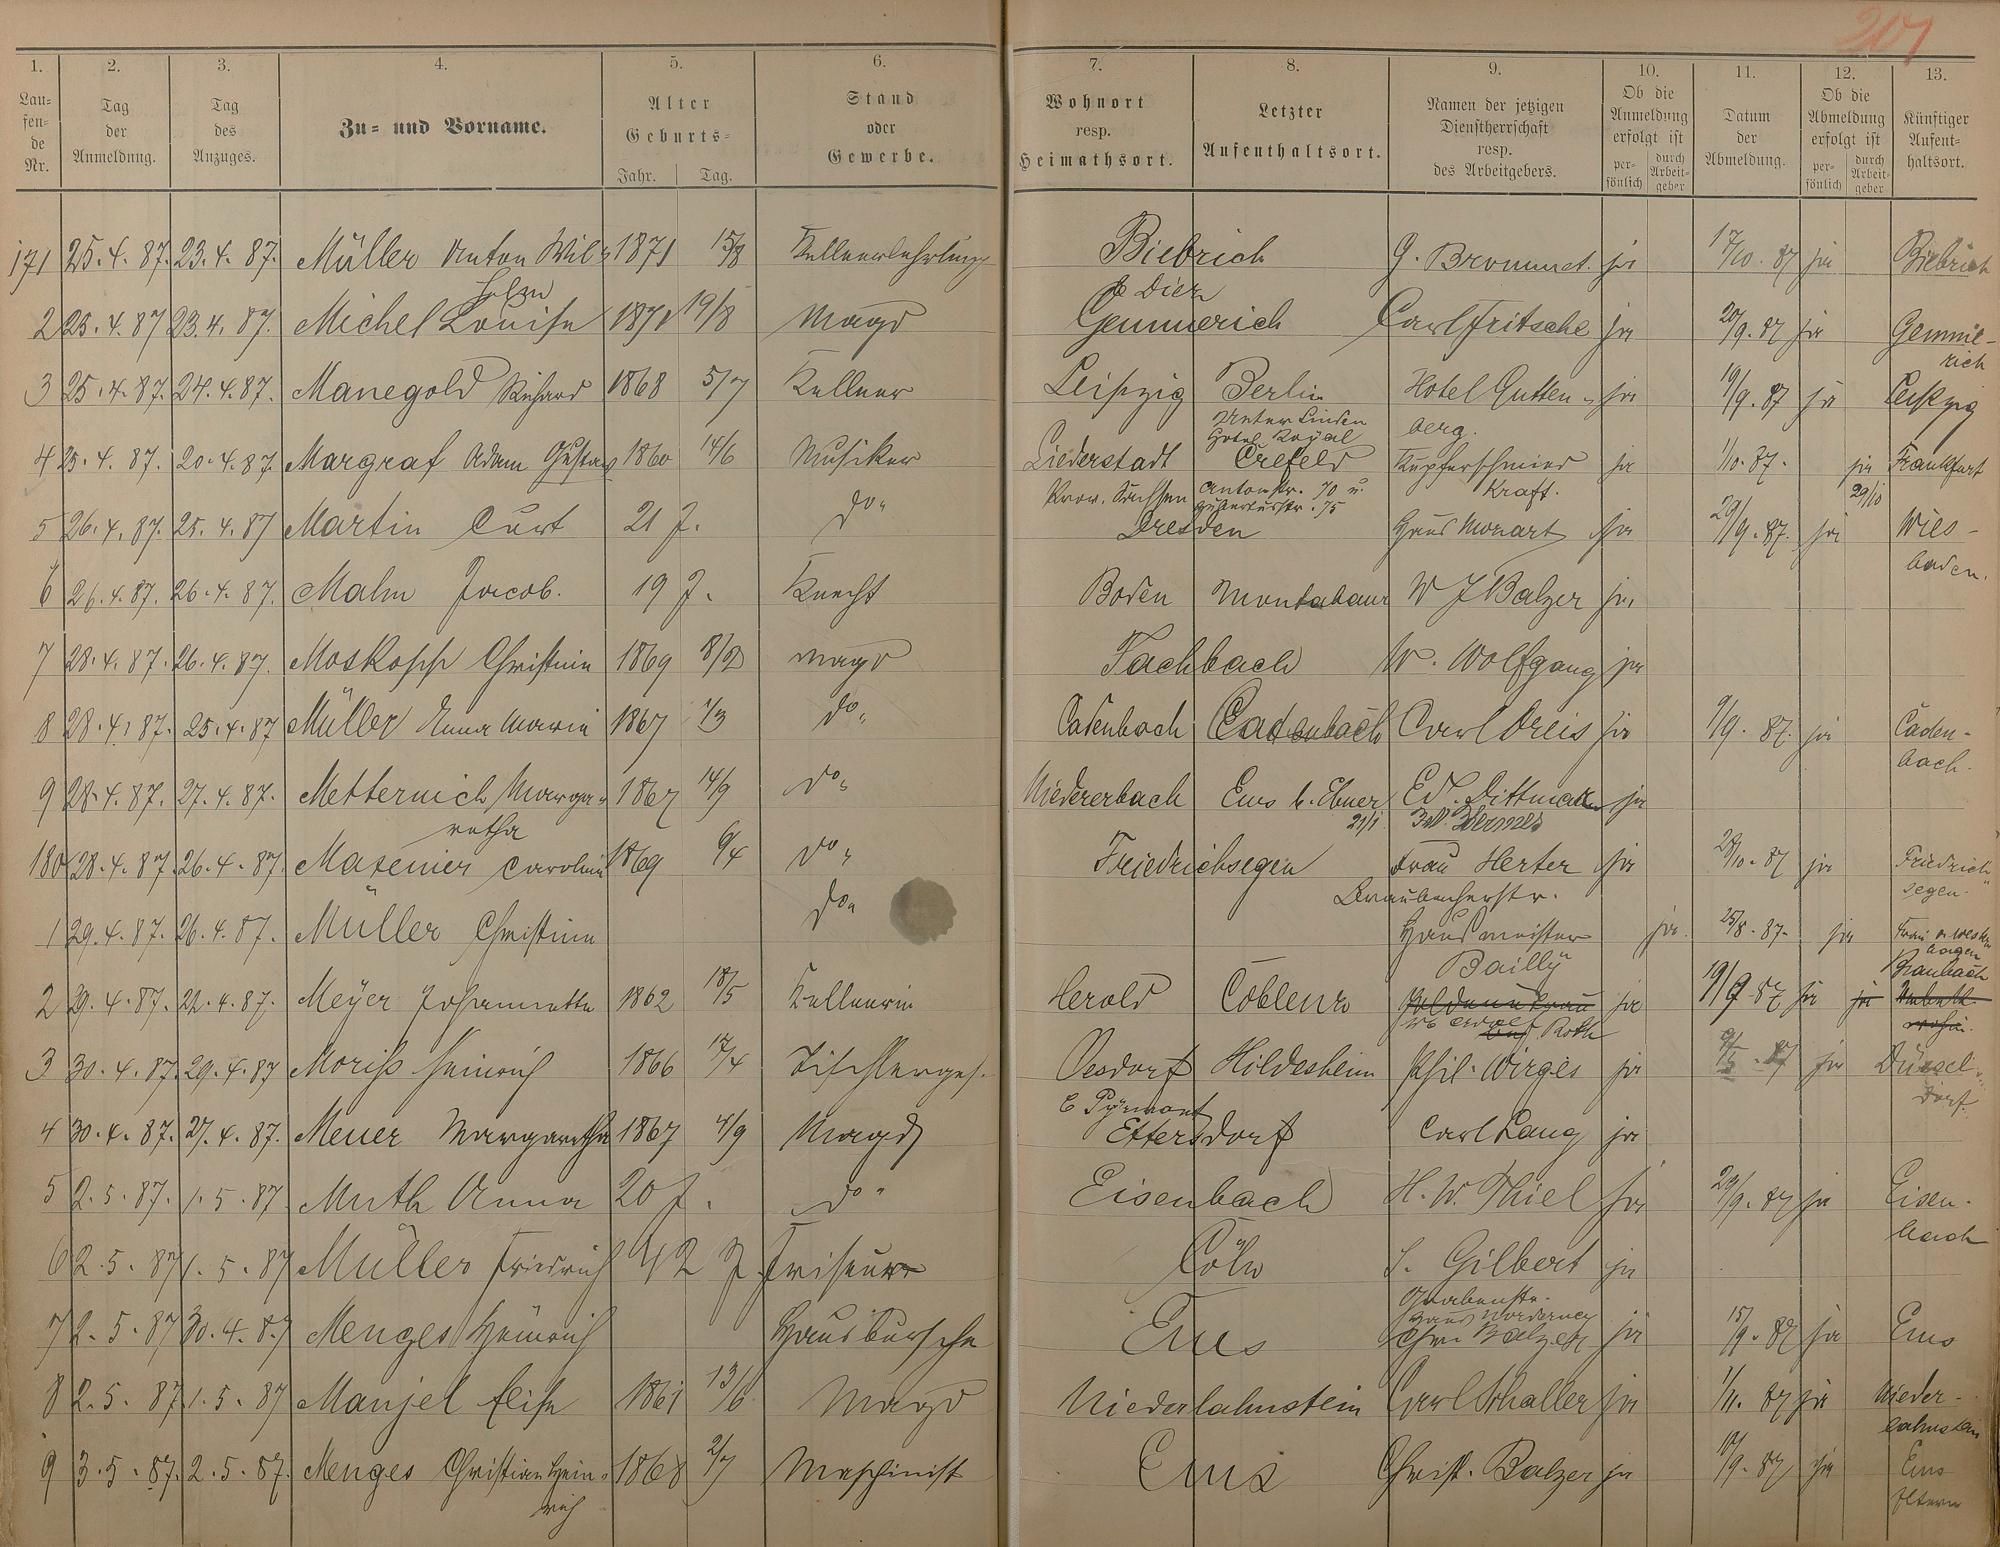 207
1. 2. 3. 4. 5. 6. 7. 8. 9. 10. 11. 12. 13.
Lau=
fen=
de
Nr.
Tag
der
Anmeldung.
Tag
des
Anzuges.
Zu= und Vorname.
Alter
Geburts=
Jahr. Tag.
Stand
oder
Gewerbe.
Wohnort
resp.
Heimathsort.
Letzter
Aufenthaltsort.
Namen der jetzigen
Dienstherrschaft
resp.
des Arbeitgebers.
Ob die
Anmeldung
erfolgt ist
per=
sönlich
durch
Arbeit=
geber
Datum
der
Abmeldung.
Ob die
Abmeldung
erfolgt ist
per=
sönlich
durch
Arbeit=
geber
Künftiger
Aufent=
haltsort.
171 25.4.87. 23.4.87. Müller Anton Wil= 1871 15/8 Kellnerlehrling Biebrich G. Brommet. ja 17/10.87 ja Biebrich
helm
Diez
2 25.4.87 23.4.87. Michel Louise 1871 19/8 Magd Gemmerich Carl Fritsche ja 20/9.87 ja Gemme-
rich
3 25.4.87. 24.4.87. Manegold Richard 1868 5/7 Kellner Leipzig Berlin Hotel Gutten- ja 19/9.87 ja Leipzig
Unter Linden berg.
Hotel Royal
4 25.4.87. 20.4.87. Margraf Adam Gustav 1860 14/6 Musiker Liederstadt Crefeld Kupferschmied ja 1/10.87. ja Frankfurt
Prov. Sachsen Antonstr. 70 u. Kraft. 29/10
5 26.4.87. 25.4.87 Martin Curt 21 J. do Dresden Haus Monart ja 29/9.87. ja Wies-
baden.
6 26.4.87. 26.4.87. Malm Jacob. 19 J. Knecht Boden Montabaur W J Balzer ja.
7 28.4.87. 26.4.87. Moskopp Christine 1869 8/2 Magd Fachbach W. Wolfgang ja
8 28.4.87. 25.4.87 Müller Anna Marie 1867 1/3 do Cadenbach Cadenbach Carl Dreis ja 9/9.87. ja Caden-
bach.
9 28.4.87. 27.4.87. Metternich Marga= 1867 14/9 do Niedererbach Ems b. Ebner Ed. Dittmar ja
retha 21/1
180 28.4.87. 26.4.87. Maxeiner Caroline 1869 6/4 do Friedrichsegen Frau Herter ja 28/10.87 ja Friedrich
Braubacherstr. segen.
1 29.4.87. 26.4.87. Müller Christine do Hausmeister ja. 25/8.87. ja
Bailly Braubach
2 29.4.87. 22.4.87. Meÿer Johannette 1862 18/5 Kellnerin Herold Coblenz ja 19/9.87 ja ja
Roth
3 30.4.87. 29.4.87 Moriß Heinrich 1866 17/4 Tischlerges. Oesdorf Hildesheim Phil. Wirges ja 9/5.87 ja Düssel
b Pyrmont dorf.
4 30.4.87. 27.4.87. Meuer Margaretha 1867 4/9 Magd Ettersdorf Carl Lang ja
5 2.5.87. 1.5.87 Muth Anna 20 J. do Eisenbach H. W. Thiel ja 29/9.87 ja Eisen-
bach
6 2.5.87 1.5.87 Müller Friedrich 42 J. Friseur Cöln S. Gilbert ja
Grabenstr.
Haus Norderney
7 2.5.87 30.4.87 Menges Heinrich Hausbursche Ems Chr. Balzer ja 15/9.87 ja Ems
8 2.5.87 1.5.87 Manjel Elise 1861 13/6. Magd Niederlahnstein Carl Schaller ja 1/11.87 ja Nieder-
lahnstein
9 3.5.87. 2.5.87. Menges Christian Hein= 1868 2/7 Maschinist Ems Christ. Balzer ja 17/9.87 ja Ems
rich Eltern